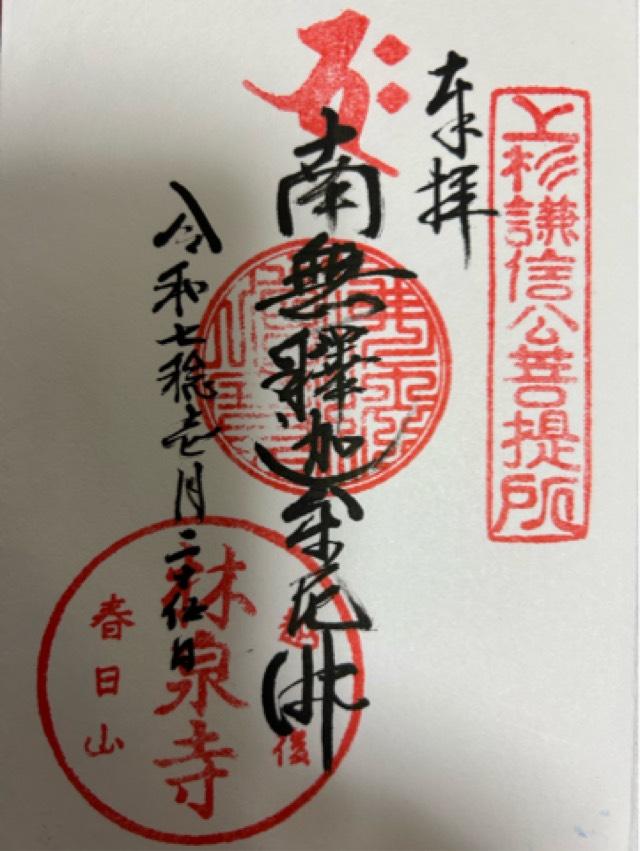 上杉謙信公菩提所
奉拝
南無釋迦牟尼佛
令和七稔壱月二十五日
越後
林泉寺
春日山